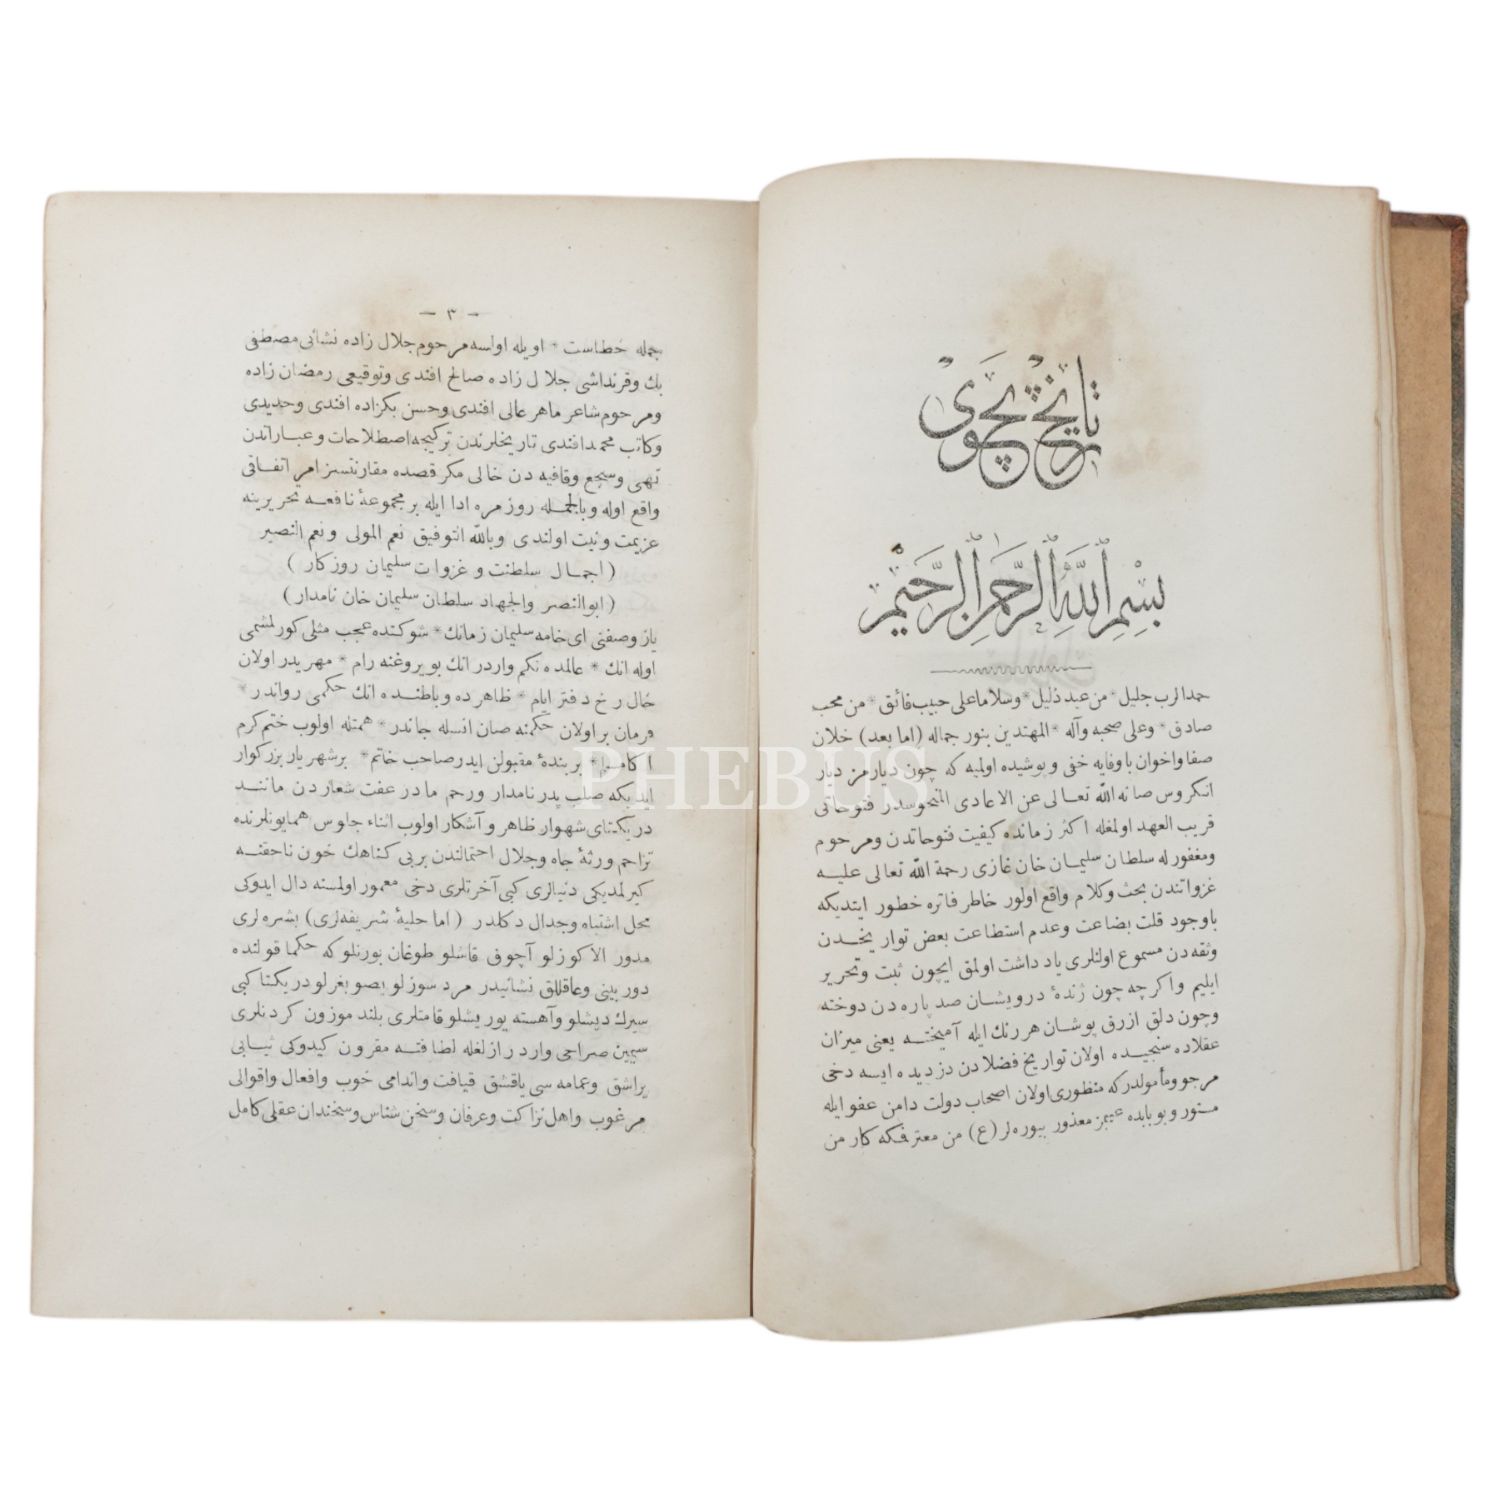 تاریخ پچوی
بسم الله الرحمن الرحیم
حمدا لرب جلیل * من عبد ذلیل * وسلاما علی حبیب فائق * من محب
صادق * وعلی صحبه وآله * المهتدین بنور جماله (اما بعد) خلان
صفا واخوان باوفایه خفی و پوشیده اولمیه که چون دیارمز دیار
انکروس صانه الله تعالی عن الاعادی المنحوسدر فتوحاتی
قریب العهد اولمغله اکثر زمانده کیفیت فتوحاتدن ومرحوم
ومغفور له سلطان سلیمان خان غازی رحمة الله تعالی علیه
غزواتندن بحث وکلام واقع اولور خاطر فاتره خطور ایتدیکه
باوجود قلت بضاعت وعدم استطاعت بعض تواریخدن
وثقه دن مسموع اولنلری یاد داشت اولمق ایچون ثبت وتحریر
ایلیم واکرچه چون ژندهٔ درویشان صد پاره دن دوخته
وچون دلق ازرق پوشان هر رنك ایله آمیخته یعنی میزان
عقلاده سنجیده اولان تواریخ فضلادن دزدیده ایسه دخی
مرجو ومأمولدر که منظوری اولان اصحاب دولت دامن عفو ایله
مستور و بو بابده عیبمز معذور بیوره لر (ع) من معترفکه کار من
— ٣ —
جمله خطاست * اویله اولسه مرحوم جلال زاده نشانی مصطفی
بك وقرنداشی جلال زاده صالح افندی وتوقیعی رمضان زاده
ومرحوم شاعر ماهر عالی افندی وحسن بکزاده افندی وحدیدی
وکاتب محمد افندی تاریخلرندن ترکیجه اصطلاحات وعباراتدن
تهی وسجع وقافیه دن خالی مکر قصده مقارنتسز امر اتفاقی
واقع اوله وبالجمله روزمره ادا ایله بر مجموعهٔ نافعه تحریرینه
عزیمت ونیت اولندی وبالله التوفیق نعم المولی ونعم النصیر
(اجمال سلطنت و غزوات سلیمان روزکار)
(ابوالنصر والجهاد سلطان سلیمان خان نامدار)
یاز وصفنی ای خامه سلیمان زمانك * شوکتده عجب مثلی کورلمشمی
اوله انك * عالمده نکم واردر انك بویروغنه رام * مهر یدر اولان
خال رخ دفتر ایام * ظاهر ده و باطنده انك حکمی رواندر *
فرمان بر اولان حکمنه صان انسله جاندر * همتله اولوب ختم کرم
بر بندهٔ مقبولن ایدر صاحب خاتم * بر شهریار بزرکوار
ایدیکه صلب پدر نامدار ورحم مادر عفت شعاردن مانند
در یکتای شهوار ظاهر و آشکار اولوب اثناء جلوس همایونلرنده
تزاحم ورثهٔ جاه وجلال احتمالندن بر بی کناهك خون ناحقنه
کیرلمدیکی دنیالری کبی آخرتلری دخی معمور اولمسنه دال ایدوکی
محل اشتباه وجدال دکلدر (اما حلیهٔ شریفه لری) بشره لری
مدور الا کوزلو آچوق قاشلو طوغان بورنلو که حکما قولنده
دور بینی وعاقللق نشانیدر مرد سوزلو یصو بغرلو در یکتا کبی
سیرك دیشلو وآهسته یوریشلو قامتلری بلند موزون کردنلری
سیمین صراحی وار دراز لغله لطافته مقرون کیدوکی ثیابی
یراشق وعمامه سی یاقشق قیافت واندامی خوب وافعال واقوالی
مرغوب واهل نزاکت وعرفان وسخن شناس وسخندان عقلی کامل
PHEBUS